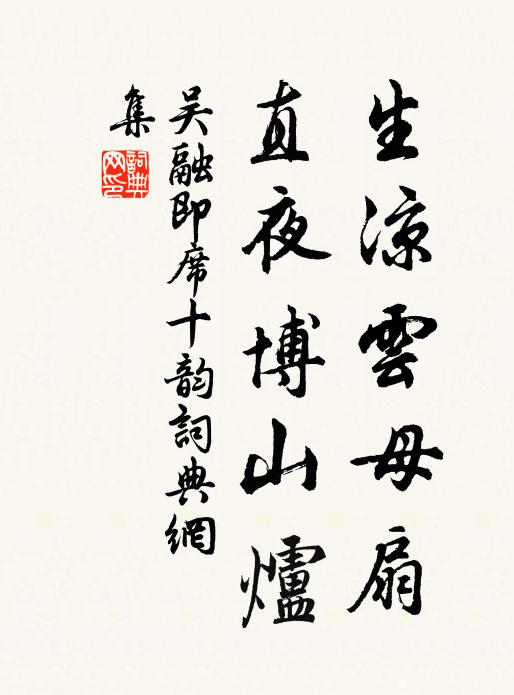 生涼雲母扇
直夜博山爐
吳融即席十韵詞典網
集
詞典网印